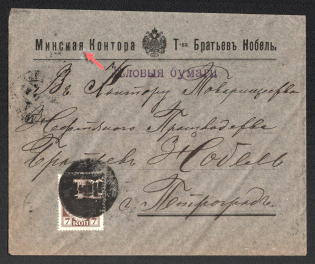 Минская Контора Т-ва Братьевъ Нобель.
Дѣловыя бумаги
Въ Контору Товарищества
Нефтяного Производства
Братьевъ Нобель
г. Петроградъ
7 КОП 7